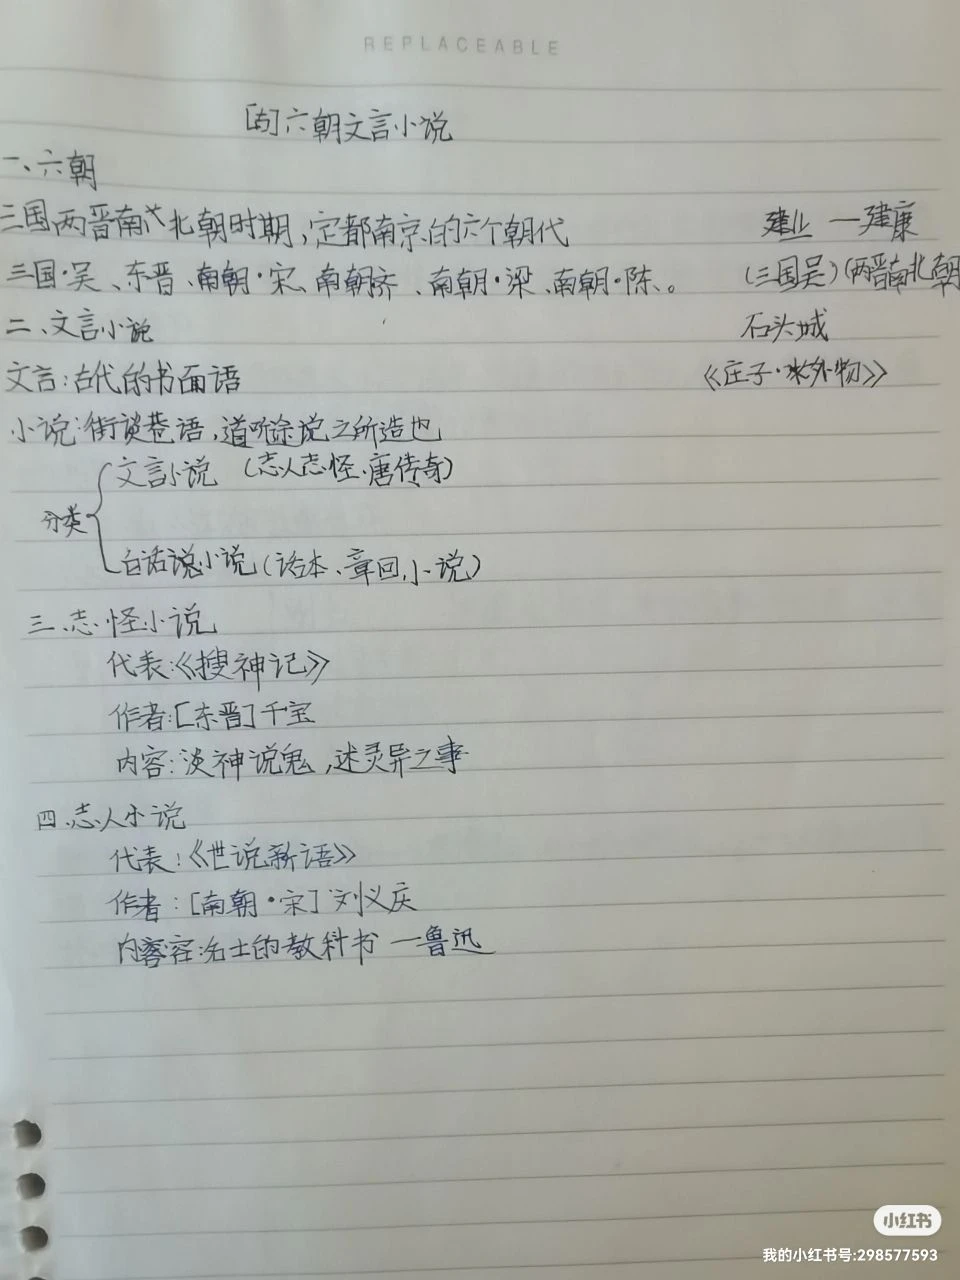 REPLACEABLE
六朝文言小说
一、六朝
三国两晋南北朝时期,定都南京的六个朝代
建业 — 建康
三国·吴、东晋、南朝·宋、南朝齐、南朝·梁、南朝·陈、。
(三国吴)(两晋南北朝
二、文言小说
石头城
文言:古代的书面语
《庄子·外物》
小说:街谈巷语,道听途说之所造也
文言小说 (志人志怪、唐传奇)
分类
白话说小说(话本、章回小说)
三、志怪小说
代表:《搜神记》
作者:[东晋]干宝
内容:淡神说鬼,述灵异之事
四、志人小说
代表:《世说新语》
作者:[南朝·宋]刘义庆
内容:名士的教科书 —鲁迅
小红书
我的小红书号:298577593